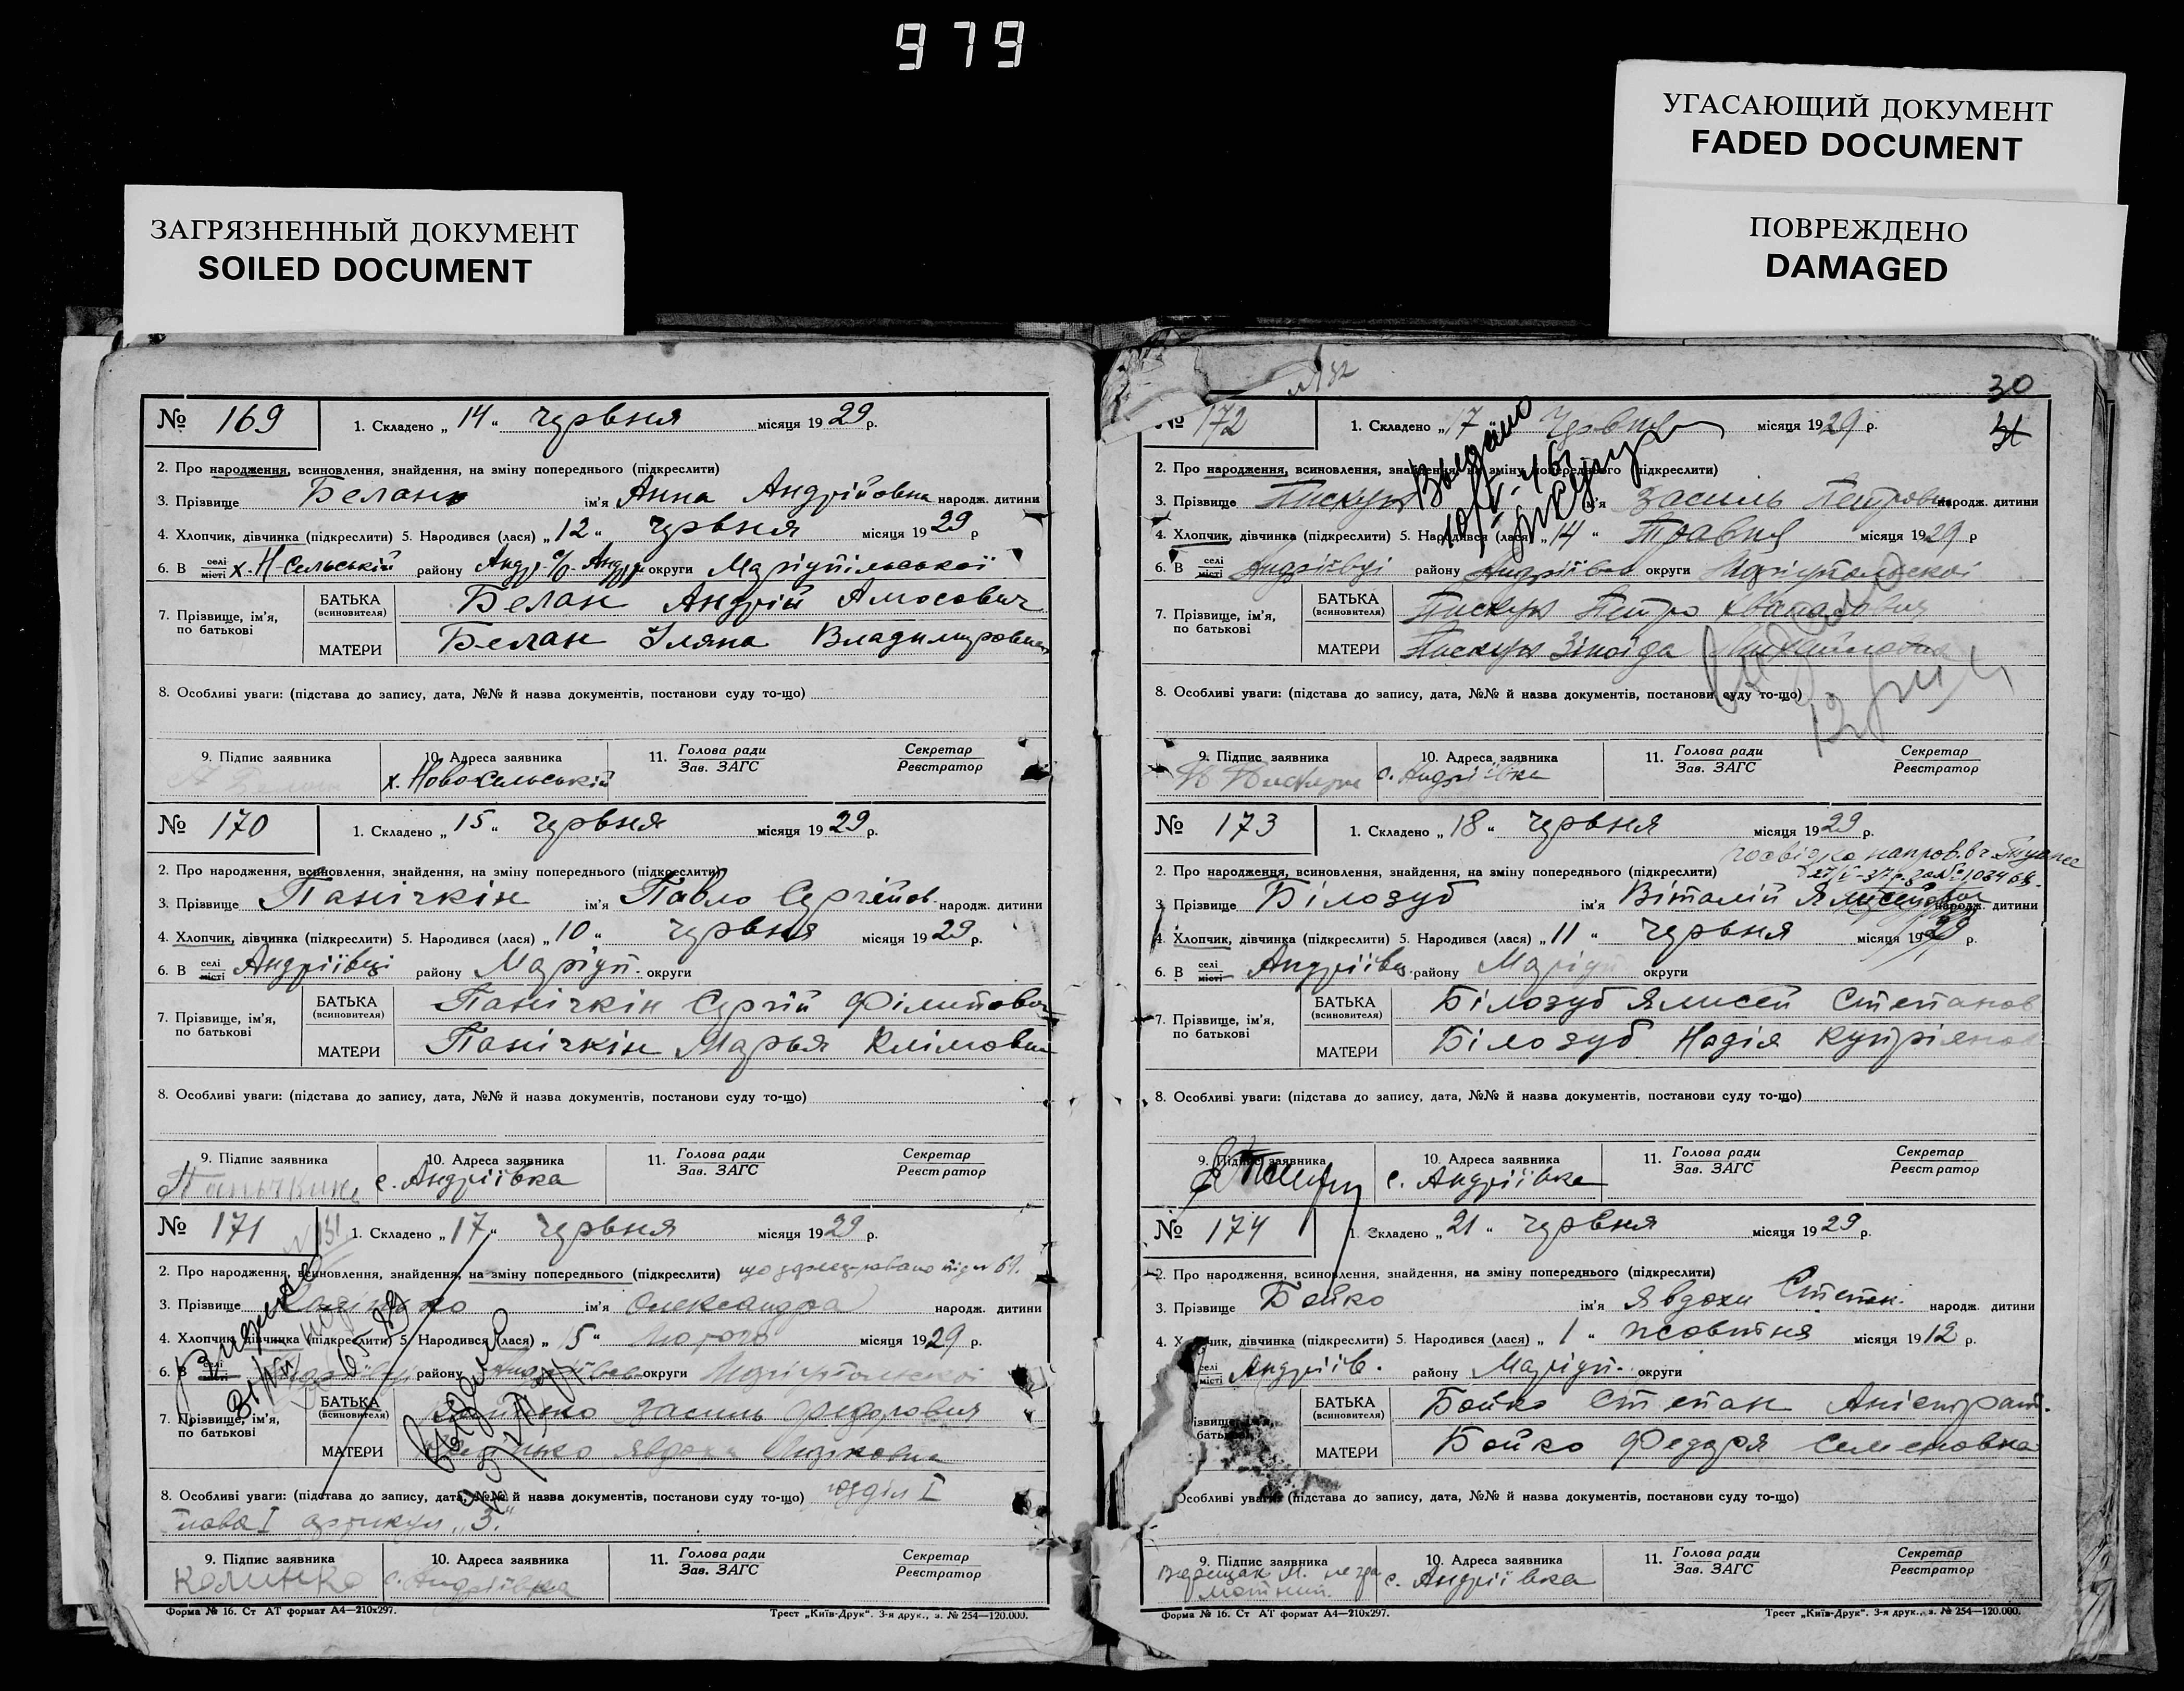 979
УГАСАЮЩИЙ ДОКУМЕНТ
FADED DOCUMENT
ПОВРЕЖДЕНО
DAMAGED
ЗАГРЯЗНЕННЫЙ ДОКУМЕНТ
SOILED DOCUMENT
№ 169 1. Складено „ 14 “ червня місяця 1929 р.
2. Про народження, всиновлення, знайдення, на зміну попереднього (підкреслити)
3. Прізвище Белань ім'я Анна Андрійовна народж. дитини
4. Хлопчик, дівчинка (підкреслити) 5. Народився (лася) „ 12 “ червня місяця 1929 р
6. В селі місті х. Н-Сельській району округи Маріупільської
7. Прізвище, ім'я, по батькові
БАТЬКА (всиновителя) Белан Андрій Амосович
МАТЕРИ Белан Уляна Владимировна
8. Особливі уваги: (підстава до запису, дата, №№ й назва документів, постанови суду то-що)
9. Підпис заявника 10. Адреса заявника 11. Голова ради Зав. ЗАГС Секретар Реєстратор
х. Новосельській
№ 170 1. Складено „ 15 “ червня місяця 1929 р.
2. Про народження, всиновлення, знайдення, на зміну попереднього (підкреслити)
3. Прізвище Панічкін ім'я Павло Сергійов. народж. дитини
4. Хлопчик, дівчинка (підкреслити) 5. Народився (лася) „ 10 “ червня місяця 1929 р.
6. В селі місті Андріївці району Маріуп. округи
7. Прізвище, ім'я, по батькові
БАТЬКА (всиновителя) Панічкін Сергій Філипович
МАТЕРИ Панічкін Марья Клімовна
8. Особливі уваги: (підстава до запису, дата, №№ й назва документів, постанови суду то-що)
9. Підпис заявника 10. Адреса заявника 11. Голова ради Зав. ЗАГС Секретар Реєстратор
с. Андріївка
№ 171 1. Складено „ 17 “ червня місяця 1929 р.
2. Про народження, всиновлення, знайдення, на зміну попереднього (підкреслити)
3. Прізвище ім'я Олександра народж. дитини
4. Хлопчик, дівчинка (підкреслити) 5. Народився (лася) „ 15 “ місяця 1929 р.
6. В селі місті району округи Маріупольскої
7. Прізвище, ім'я, по батькові
БАТЬКА (всиновителя) Василь Федорович
МАТЕРИ Явдоха
8. Особливі уваги: (підстава до запису, дата, №№ й назва документів, постанови суду то-що) розділ I
глава I артикул „3.“
9. Підпис заявника 10. Адреса заявника 11. Голова ради Зав. ЗАГС Секретар Реєстратор
Калинко с. Андріївка
Форма № 16. Ст АТ формат А4—210х297. Трест „Київ-Друк“. 3-я друк., з. № 254—120.000.
30
№ 172 1. Складено „ 17 “ Червня місяця 1929 р.
2. Про народження, всиновлення, знайдення, на зміну попереднього (підкреслити)
3. Прізвище Пискун ім'я Василь Петрович народж. дитини
4. Хлопчик, дівчинка (підкреслити) 5. Народився (лася) „ 14 “ Травня місяця 1929 р
6. В селі місті Андріївці району Андріївсь округи Маріупольскої
7. Прізвище, ім'я, по батькові
БАТЬКА (всиновителя) Пискун Петро
МАТЕРИ Пискун Зіноіда
8. Особливі уваги: (підстава до запису, дата, №№ й назва документів, постанови суду то-що)
9. Підпис заявника 10. Адреса заявника 11. Голова ради Зав. ЗАГС Секретар Реєстратор
с. Андріївка
№ 173 1. Складено „ 18 “ червня місяця 1929 р.
2. Про народження, всиновлення, знайдення, на зміну попереднього (підкреслити)
3. Прізвище Білозуб ім'я Віталій Ялисейович народж. дитини
4. Хлопчик, дівчинка (підкреслити) 5. Народився (лася) „ 11 “ червня місяця 1929 р.
6. В селі місті Андріївц. району Маріуп округи
7. Прізвище, ім'я, по батькові
БАТЬКА (всиновителя) Білозуб Ялисей Степанов
МАТЕРИ Білозуб Надія Купріянов
8. Особливі уваги: (підстава до запису, дата, №№ й назва документів, постанови суду то-що)
9. Підпис заявника 10. Адреса заявника 11. Голова ради Зав. ЗАГС Секретар Реєстратор
с. Андріївка
№ 174 1. Складено „ 21 “ червня місяця 1929 р.
2. Про народження, всиновлення, знайдення, на зміну попереднього (підкреслити)
3. Прізвище Бойко ім'я Явдохи Степан. народж. дитини
4. Хлопчик, дівчинка (підкреслити) 5. Народився (лася) „ 1 “ жовтня місяця 1912 р.
селі місті Андріїв. району Маріуп. округи
БАТЬКА (всиновителя) Бойко Степан Аністрат.
МАТЕРИ Бойко Федоря Семеновна
Особливі уваги: (підстава до запису, дата, №№ й назва документів, постанови суду то-що)
9. Підпис заявника 10. Адреса заявника 11. Голова ради Зав. ЗАГС Секретар Реєстратор
Верещак М. не гра
мотний. с. Андріївка
Форма № 16. Ст АТ формат А4—210х297. Трест „Київ-Друк“. 3-я друк., з. № 254—120.000.